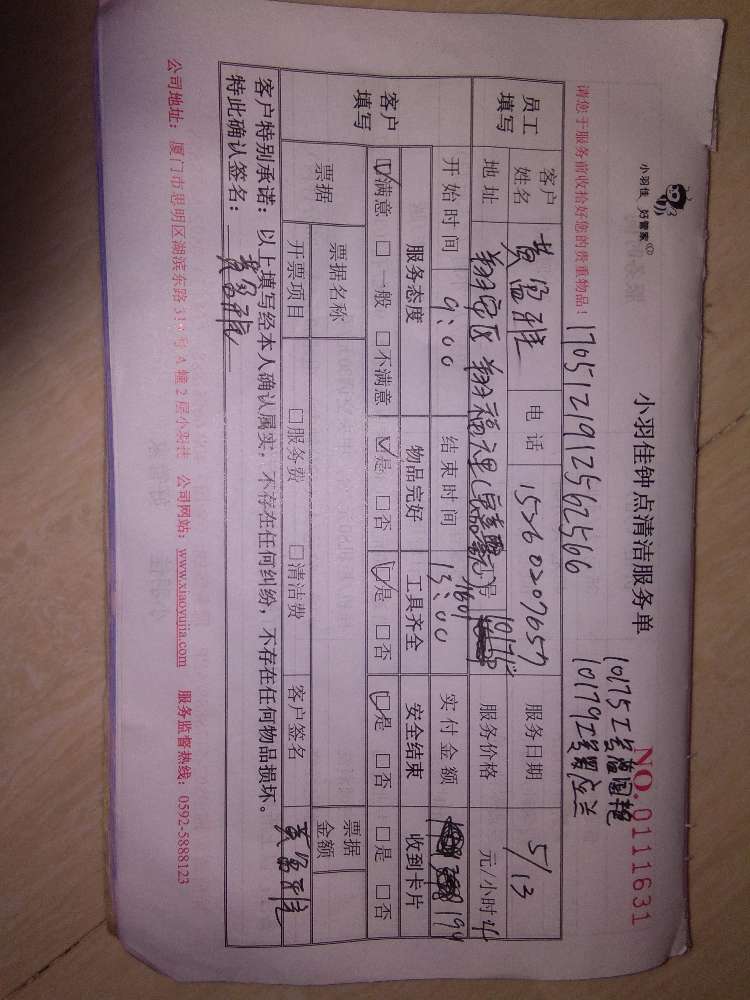 小羽佳 好管家
小羽佳钟点清洁服务单
NO. 0111631
请您于服务前收拾好您的贵重物品！
17051219125562566
员工填写
客户姓名 黄富雅 电话 15260207057 服务日期 5/13
地址 翔安区翔福里 服务价格 元/小时
开始时间 9:00 结束时间 13:00 实付金额 194
客户填写
服务态度 物品完好 工具齐全 安全结束 收到卡片
☑满意 □一般 □不满意 ☑是 □否 ☑是 □否 ☑是 □否 □是 □否
票据 票据名称 票据金额
开票项目 □服务费 □清洁费 客户签名 黄富雅
客户特别承诺：以上填写经本人确认属实，不存在任何纠纷，不存在任何物品损坏。
特此确认签名：黄富雅
公司地址：厦门市思明区湖滨东路 号A幢2层小羽佳 公司网站：www.xiaoyujia.com 服务监督热线：0592-5888123